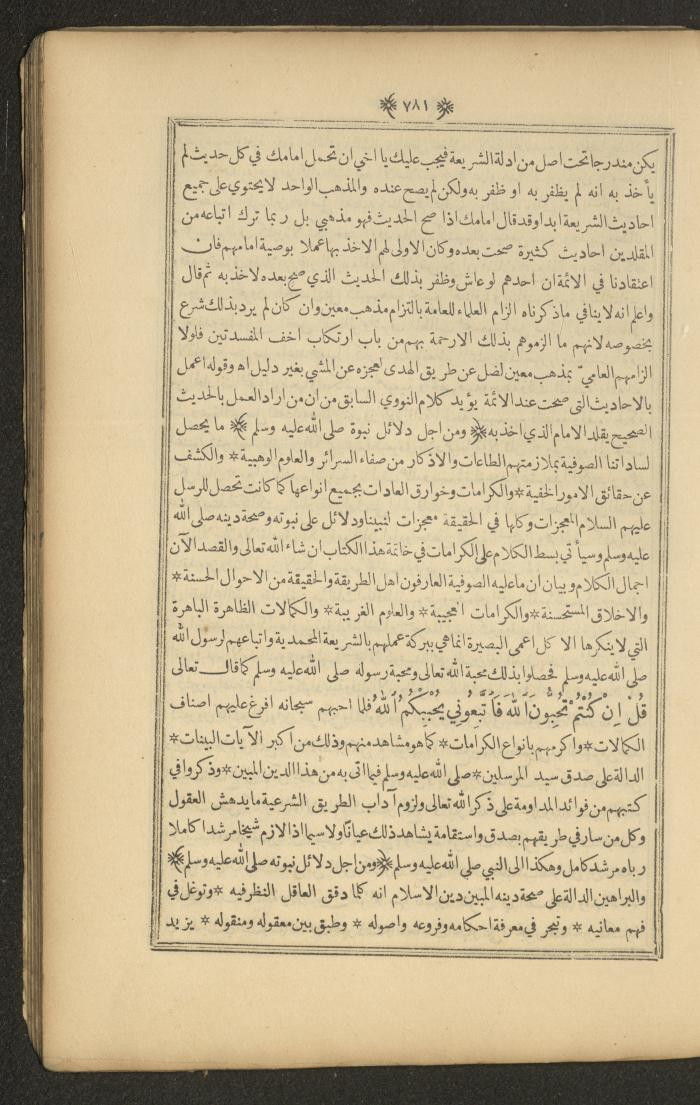 ﴿ ٧٨١ ﴾
يكن مندرجا تحت اصل من ادلة الشريعة فيجب عليك يا اخي ان تحمل امامك في كل حديث لم
يأخذ به انه لم يظفر به او ظفر به ولكن لم يصح عنده والمذهب الواحد لا يحتوي على جميع
احاديث الشريعة ابدا وقد قال امامك اذا صح الحديث فهو مذهبي بل ربما ترك اتباعه من
المقلدين احاديث كثيرة صحت بعده وكان الاولى لهم الاخذ بها عملا بوصية امامهم فان
اعتقادنا في الائمة ان احدهم لو عاش وظفر بذلك الحديث الذي صح بعده لاخذ به ثم قال
واعلم انه لا ينافي ما ذكرناه الزام العلماء للعامة بالتزام مذهب معين وان كان لم يرد بذلك شرع
بخصوصه لانهم ما الزموهم بذلك الا رحمة بهم من باب ارتكاب اخف المفسدتين فلولا
الزامهم العاميّ بمذهب معين لضل عن طريق الهدى لعجزه عن المشي بغير دليل اه وقوله اعمل
بالاحاديث التي صحت عند الائمة يؤيد كلام النووي السابق من ان من اراد العمل بالحديث
الصحيح يقلد الامام الذي اخذ به ﴿ ومن اجل دلائل نبوة صلى الله عليه وسلم ﴾ ما يحصل
لساداتنا الصوفية بملازمتهم الطاعات والاذكار من صفاء السرائر والعلوم الوهبية * والكشف
عن حقائق الامور الخفية * والكرامات وخوارق العادات بجميع انواعها كما كانت تحصل للرسل
عليهم السلام المعجزات وكلها في الحقيقة معجزات لنبينا ودلائل على نبوته وصحة دينه صلى الله
عليه وسلم وسيأتي بسط الكلام على الكرامات في خاتمة هذا الكتاب ان شاء الله تعالى والقصد الآن
اجمال الكلام وبيان ان ما عليه الصوفية العارفون اهل الطريقة والحقيقة من الاحوال الحسنة *
والاخلاق المستحسنة * والكرامات العجيبة * والعلوم الغريبة * والكمالات الظاهرة الباهرة
التي لا ينكرها الا كل اعمى البصيرة انما هي ببركة عملهم بالشريعة المحمدية واتباعهم لرسول الله
صلى الله عليه وسلم فحصلوا بذلك محبة الله تعالى ومحبة رسوله صلى الله عليه وسلم كما قال تعالى
قُلْ اِنْ كُنْتُمْ تُحِبُّونَ ٱللّٰهَ فَاتَّبِعُونِي يُحْبِبْكُمُ ٱللّٰهُ فلما احبهم سبحانه افرغ عليهم اصناف
الكمالات * واكرمهم بانواع الكرامات * كما هو مشاهد منهم وذلك من اكبر الآيات البينات *
الدالة على صدق سيد المرسلين * صلى الله عليه وسلم فيما اتى به من هذا الدين المبين * وذكروا في
كتبهم من فوائد المداومة على ذكر الله تعالى ولزوم آداب الطريق الشرعية ما يدهش العقول
وكل من سار في طريقهم بصدق واستقامة يشاهد ذلك عيانا ولا سيما اذا لازم شيخا مرشدا كاملا
رباه مرشد كامل وهكذا الى النبي صلى الله عليه وسلم ﴿ ومن اجل دلائل نبوته صلى الله عليه وسلم ﴾
والبراهين الدالة على صحة دينه المبين دين الاسلام انه كلما دقق العاقل النظر فيه * وتوغل في
فهم معانيه * وتبحر في معرفة احكامه وفروعه واصوله * وطبق بين معقوله ومنقوله * يزيد